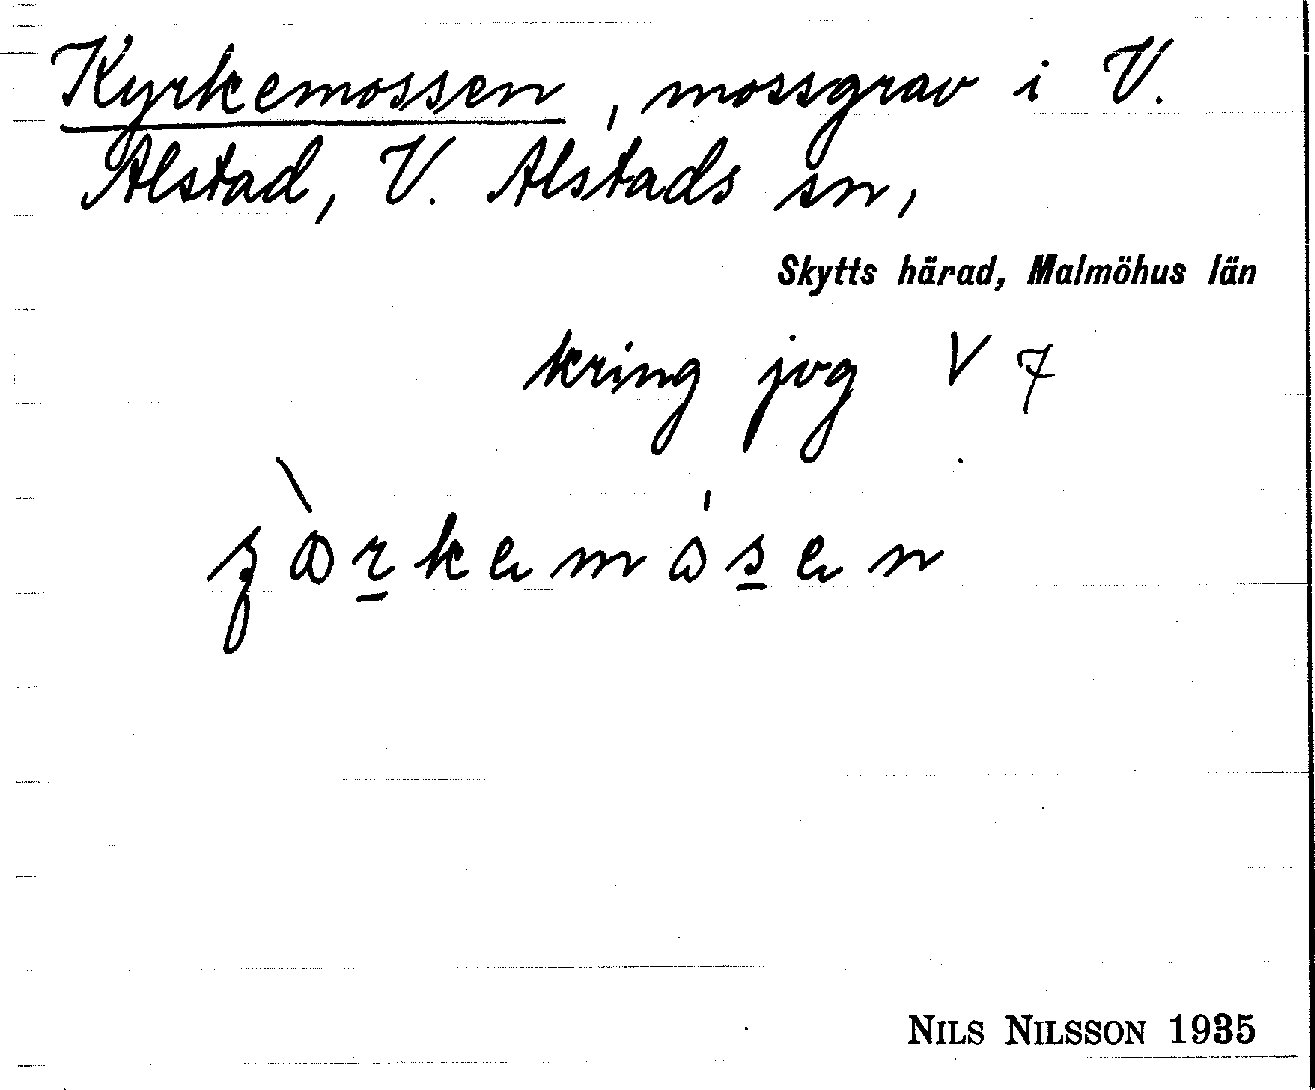 Kyrkemossen, mossgrav i V.
Alstad, V. Alstads sn,
Skytts härad, Malmöhus län
kring jvg V 7
NILS NILSSON 1935